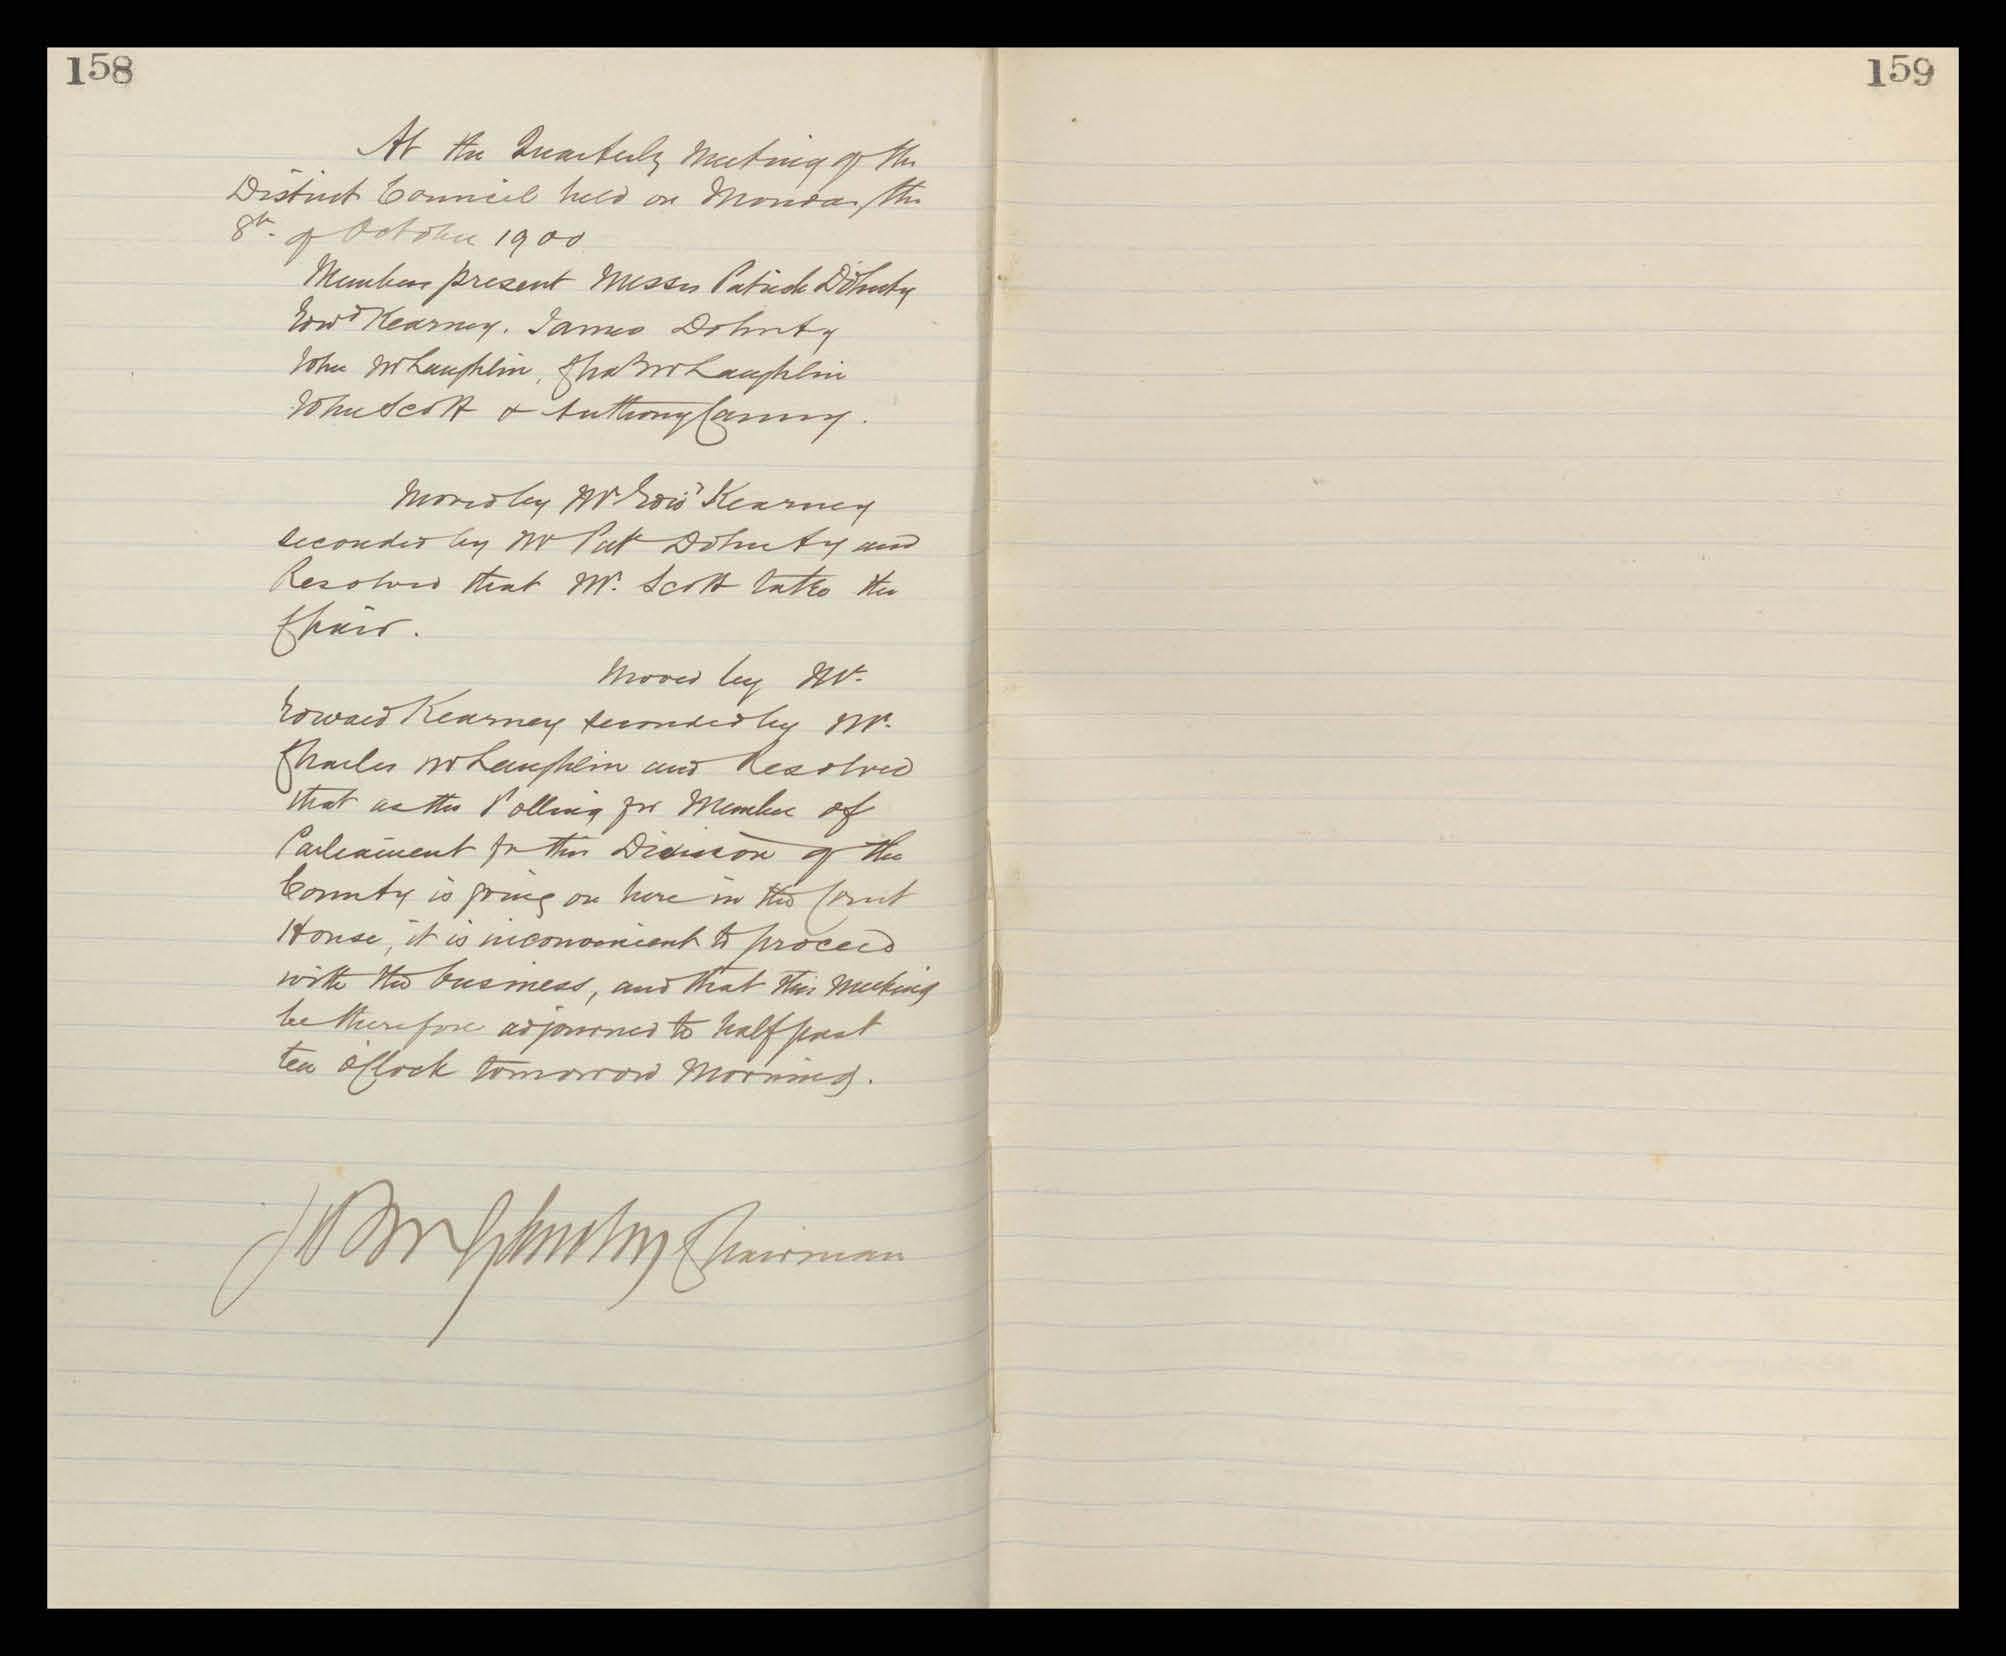 158
159
At the Quarterly Meeting of the
District Council held on Monday the
8th. of October 1900
Members present Messrs Patrick Doherty
Edwd Kearney. James Doherty
John McLaughlin, Chas McLaughlin
John Scott & Anthony Canny.
Moved by Mr Edwd Kearney
seconded by Mr Patk Doherty and
Resolved that Mr. Scott take the
Chair.
Moved by Mr.
Edward Kearney seconded by Mr.
Charles McLaughlin and Resolved
that as the Polling for Member of
Parliament for this Division of the
County is going on here in the Court
House, it is inconvenient to proceed
with the business, and that this meeting
be therefore adjourned to half past
ten o'Clock tomorrow Morning.
Chairman